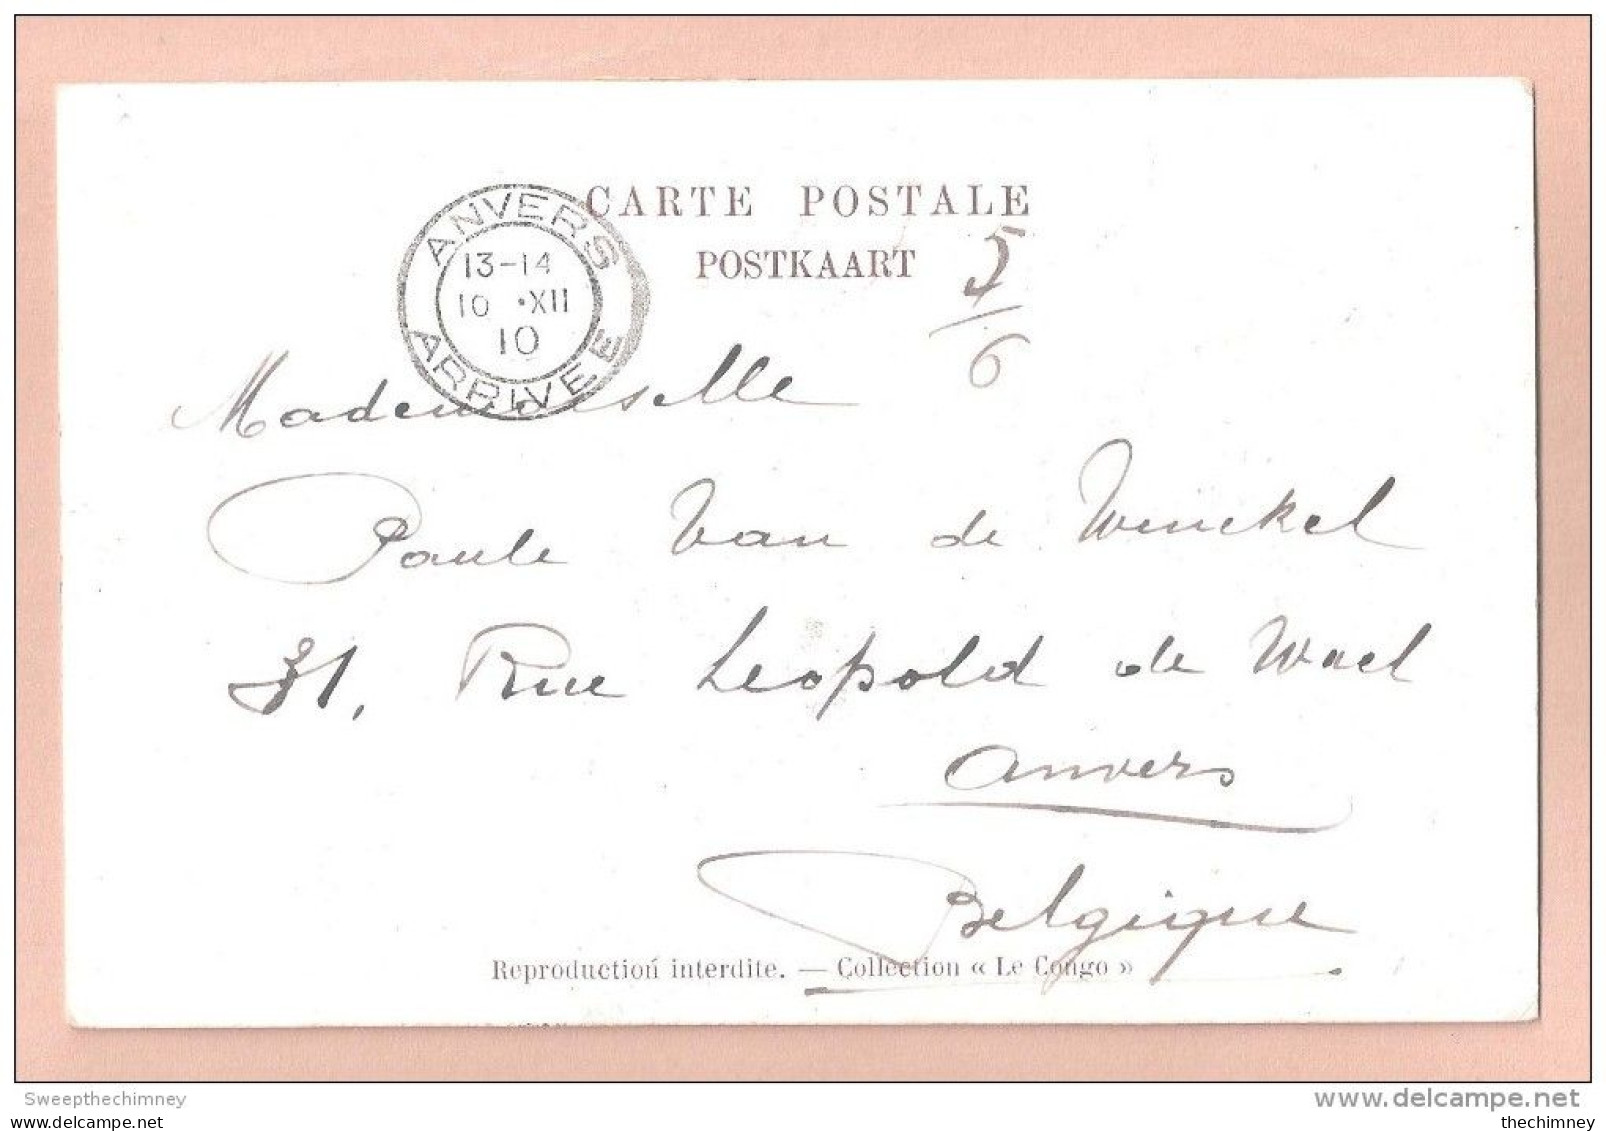 CARTE POSTALE
POSTKAART
ANVERS
13-14
10 •XII
10
ARRIVEE
5/6
Mademoiselle
Paule Van de Winckel
31, Rue Leopold de Wael
Anvers
Belgique
Reproduction interdite. — Collection « Le Congo »
Sweepthechimney
www.delcampe.net
thechimney